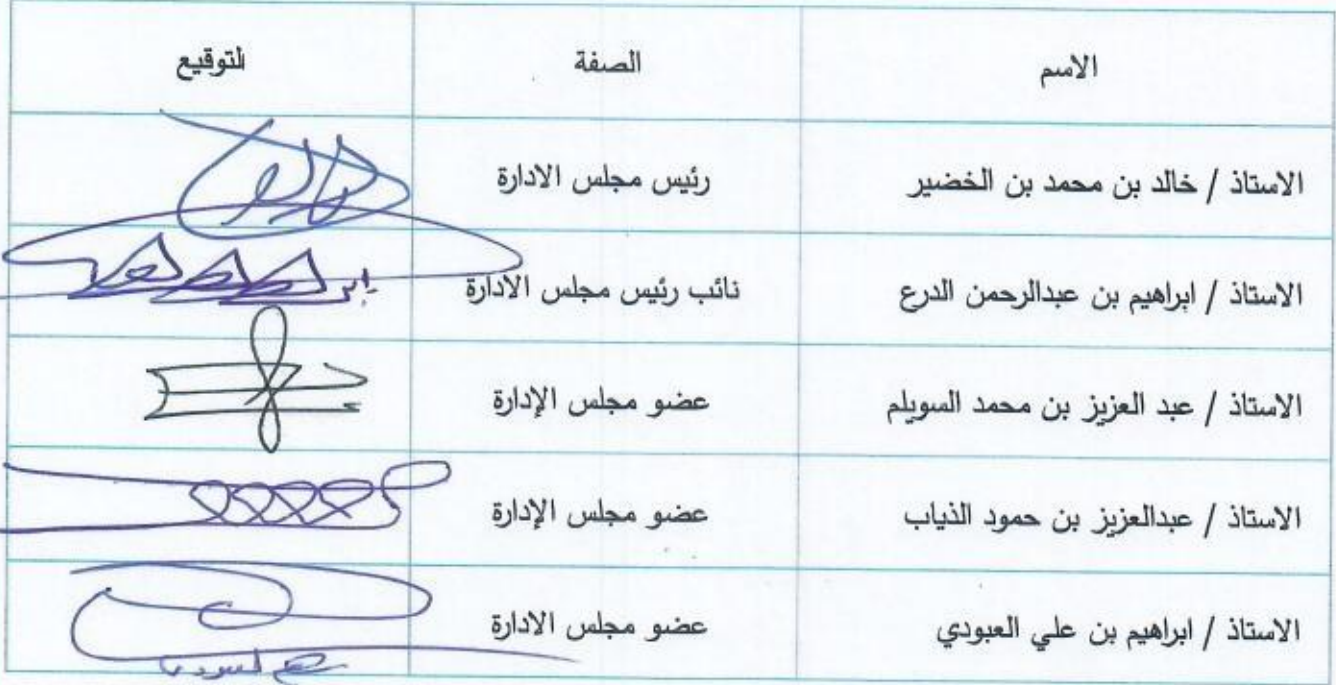 الاسم الصفة التوقيع
الاستاذ / خالد بن محمد بن الخضير رئيس مجلس الادارة
الاستاذ / ابراهيم بن عبدالرحمن الدرع نائب رئيس مجلس الادارة
الاستاذ / عبد العزيز بن محمد السويلم عضو مجلس الإدارة
الاستاذ / عبدالعزيز بن حمود الذياب عضو مجلس الإدارة
الاستاذ / ابراهيم بن علي العبودي عضو مجلس الادارة